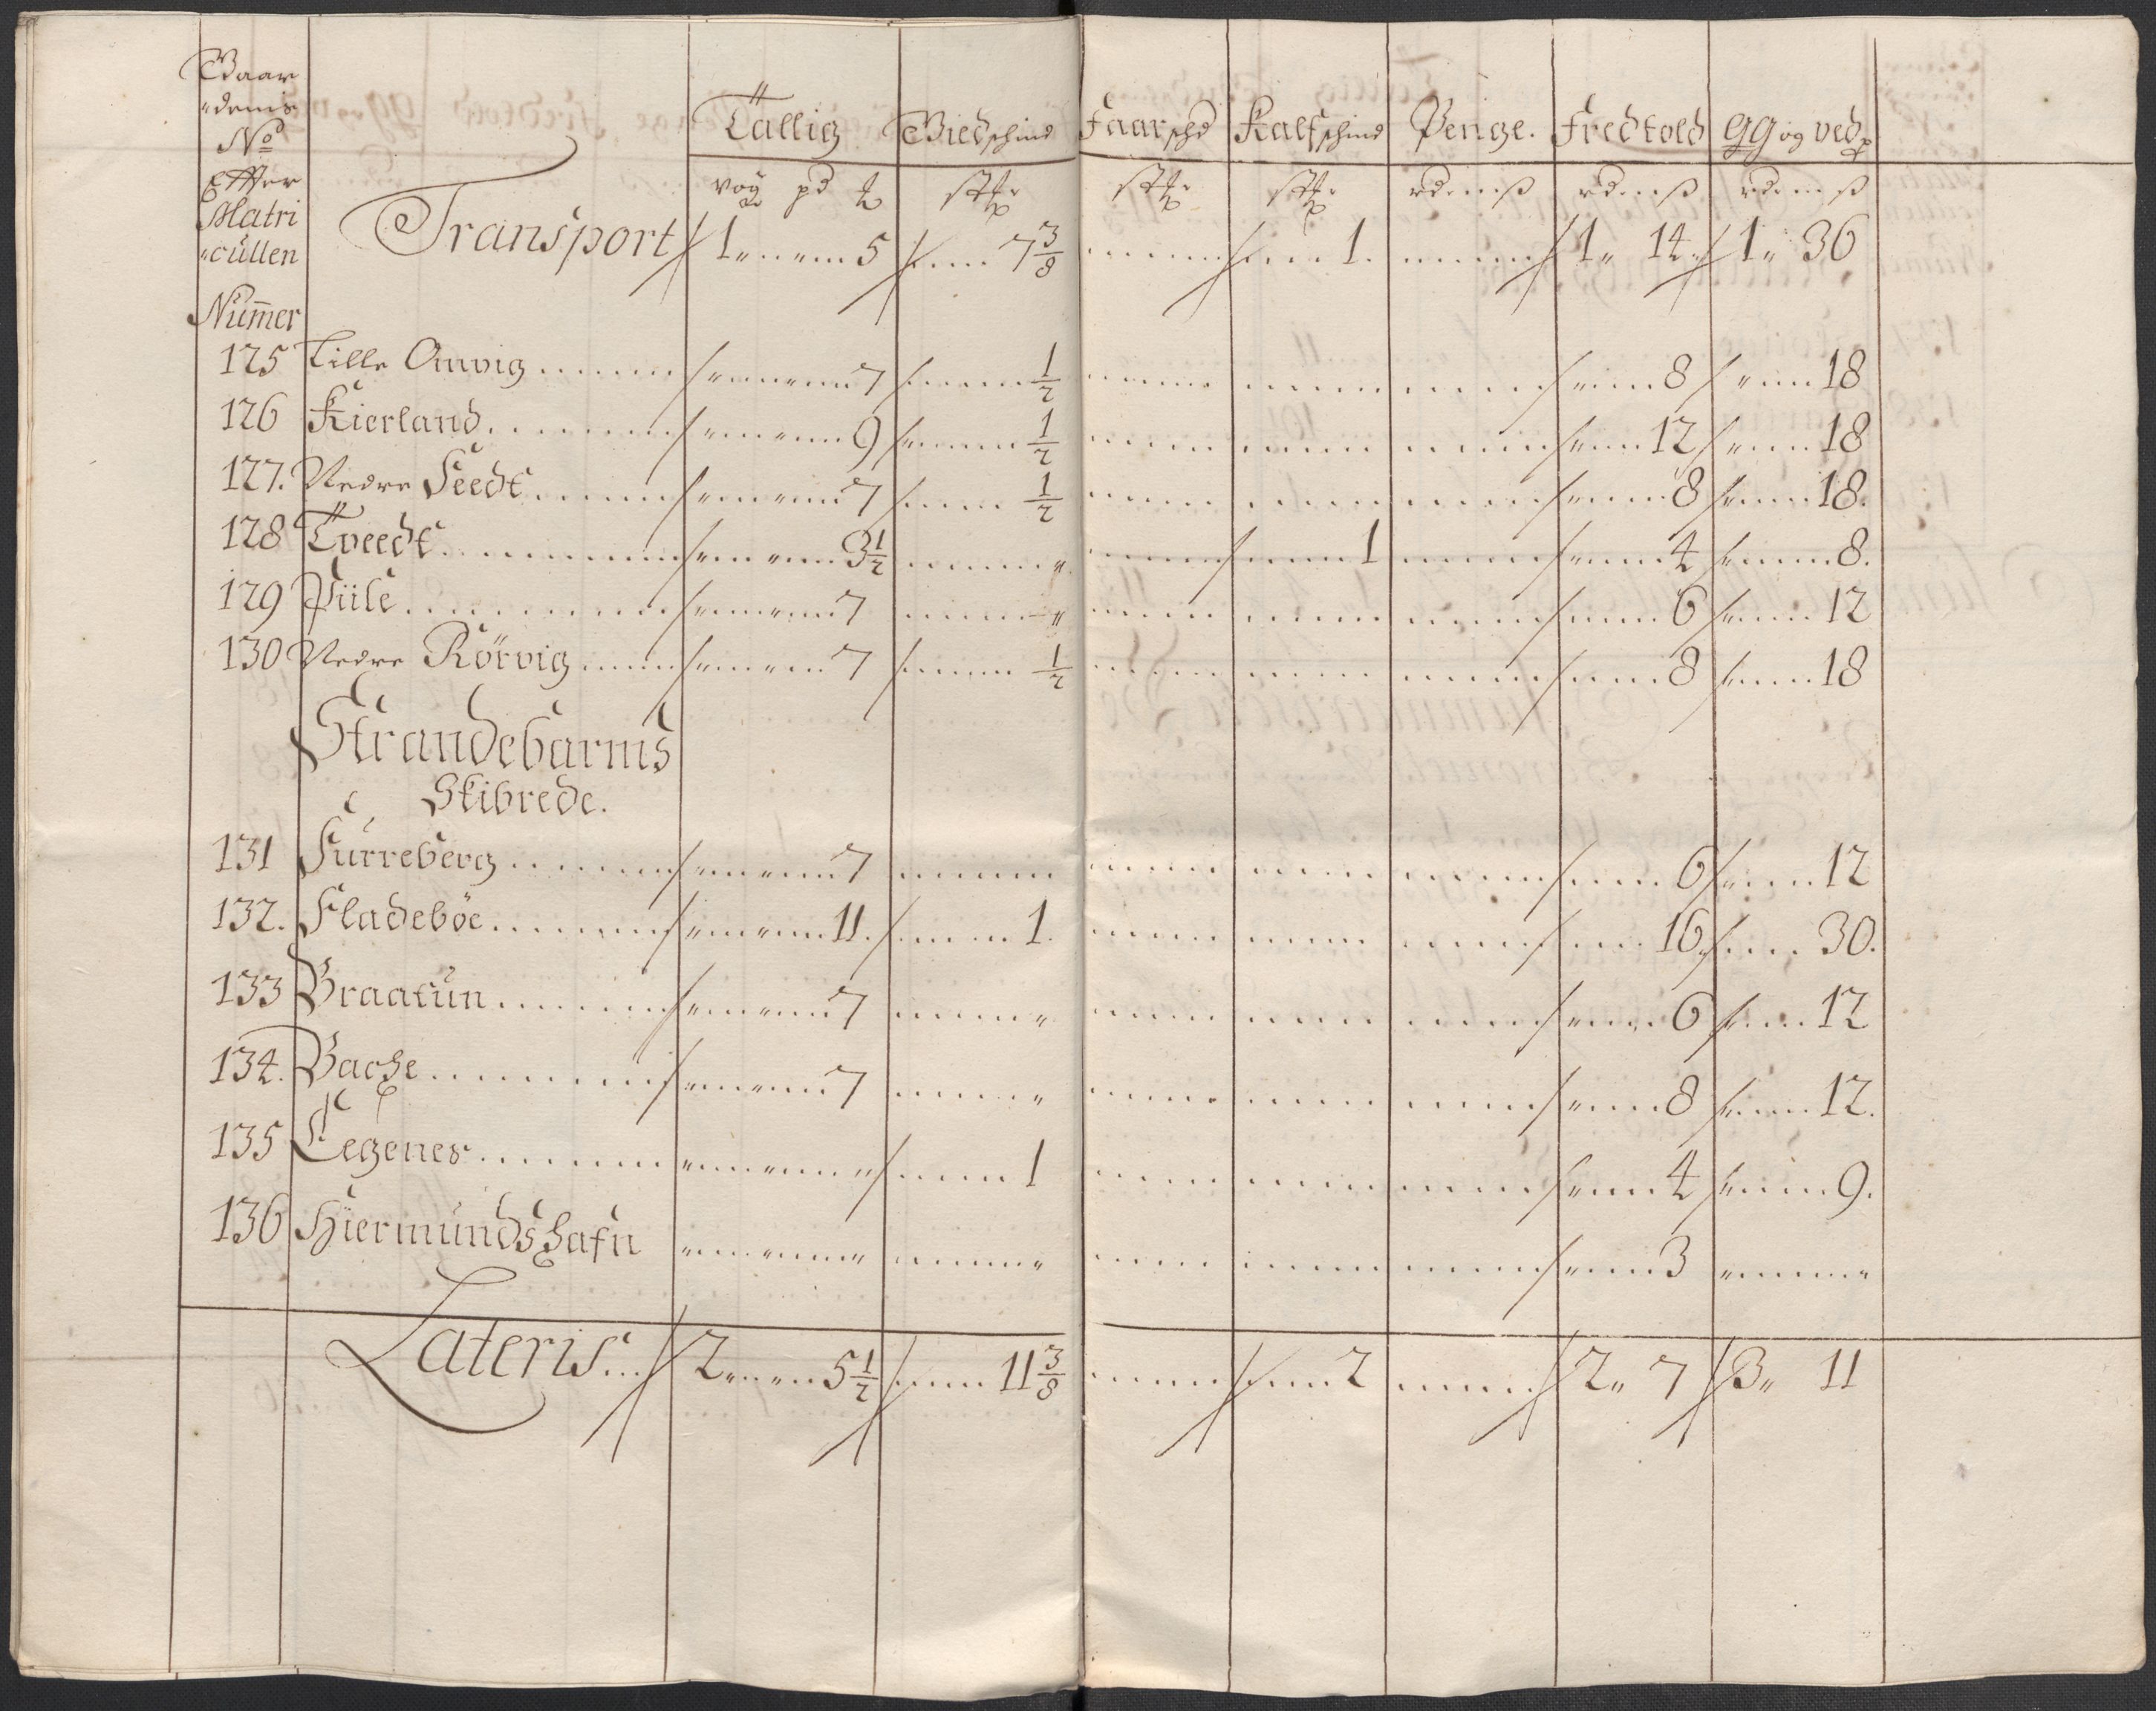 Gaar
dernis
No
Effter
Matri
cullen
Nummer
Tallig Giedschind Faarschd Kalfschind Penge. Fredtold gg og ved
voger pd stk stk stk rd m ß rd m ß rd m ß
Transport 1 5 7 3/8 1. 1 14 1 36
125 Lille Omvig 7 1/2 8 18
126 Kierland 9 1/2 12 18
127. Nedre Feedt 7 1/2 8 18.
128 Tveedt 3 1/2 1 4 8.
129 Piile 7 6 12
130 Nedre Rörvig 7 1/2 8 18
Strandebarms
Skibrede.
131 Furreberg 7 6 12
132. Fladeböe 11. 1. 16. 30.
133 Braatun 7 6 12
134. Bache 7 8 12.
135 Legenes 1 4 9.
136 Hiermundshafn 3
Lateris 2 5 1/2 11 3/8 2 2 7 3 11